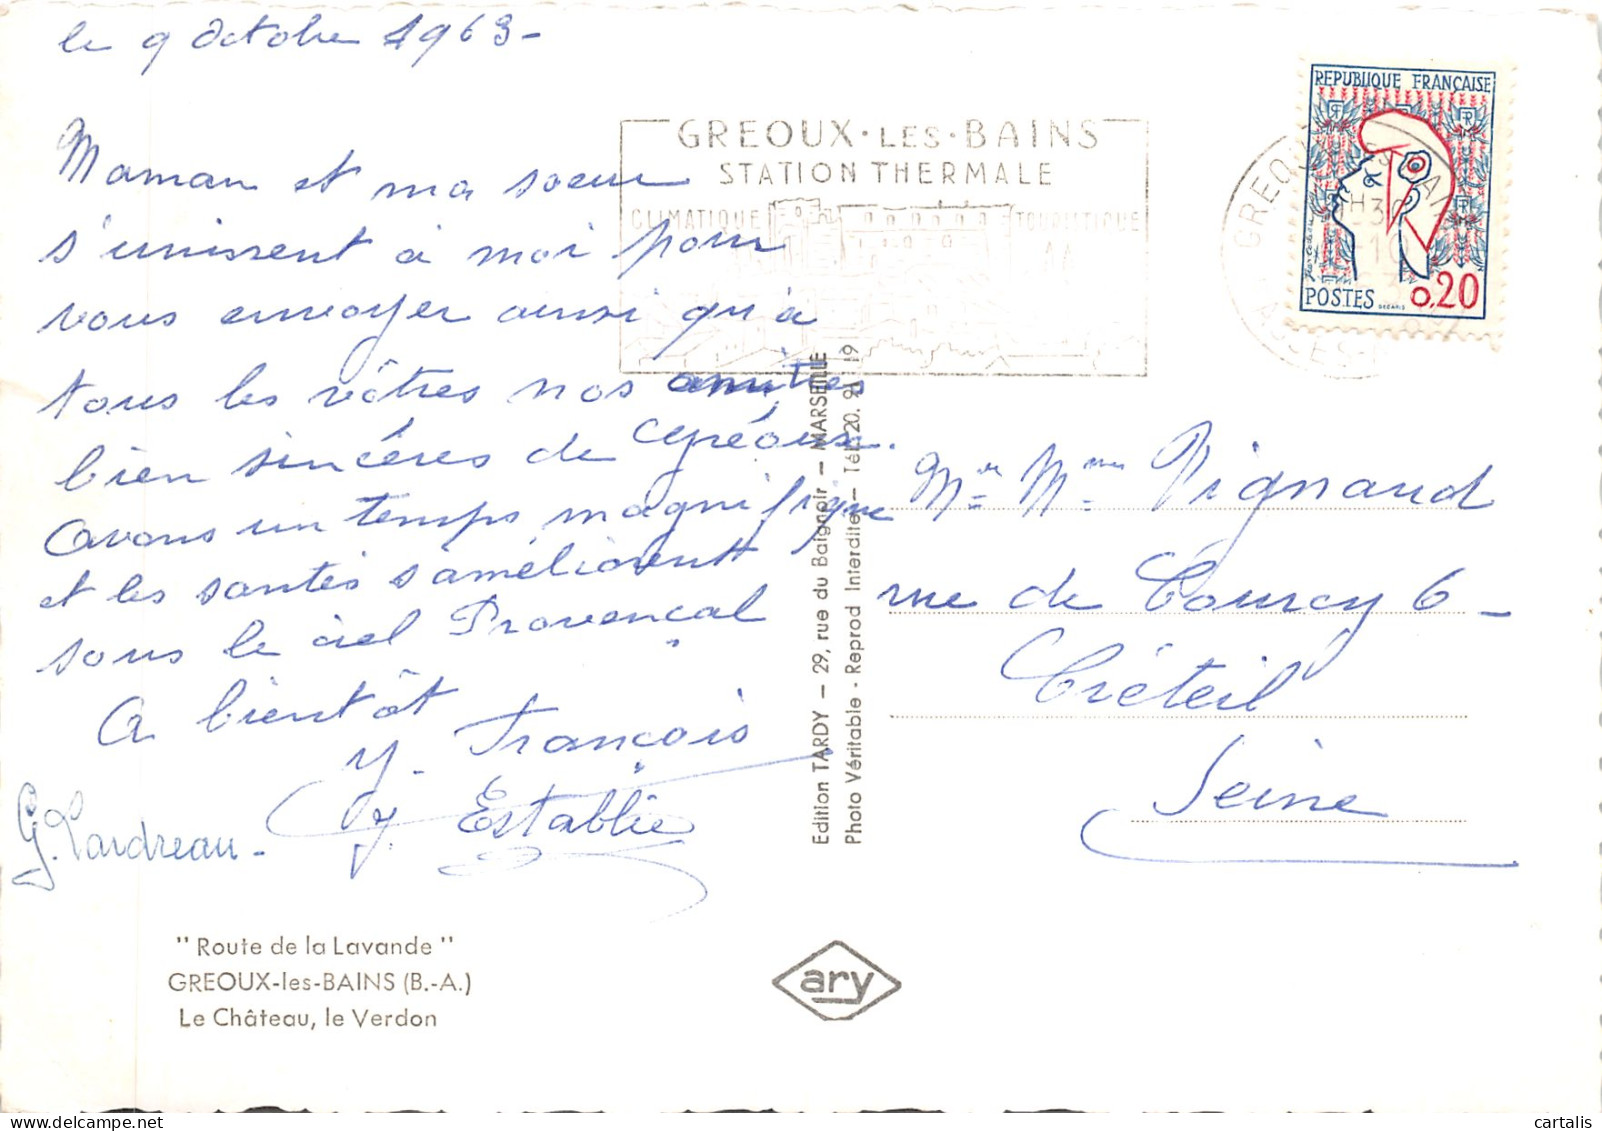 le 9 octobre 1963-
Maman et ma soeur
s'unissent à moi pour
vous envoyer ainsi qu'à
tous les vôtres nos amitiés
bien sincères de Gréoux.
avons un temps magnifique
et les santés s'améliorent
sous le ciel Provençal
A bientôt
Y. François
Y. Establie
G. Landreau-
"Route de la Lavande"
GREOUX-les-BAINS (B.-A.)
Le Château, le Verdon
GREOUX·LES·BAINS
STATION THERMALE
CLIMATIQUE TOURISTIQUE
REPUBLIQUE FRANÇAISE
POSTES 0,20
Edition TARDY — 29, rue du Baignoir — MARSEILLE
Photo Véritable - Reprod Interdite — Tél. 20. 91 19
Mr Mme Vignaud
rue de Courcy 6-
Créteil
Seine
ary
cartalis